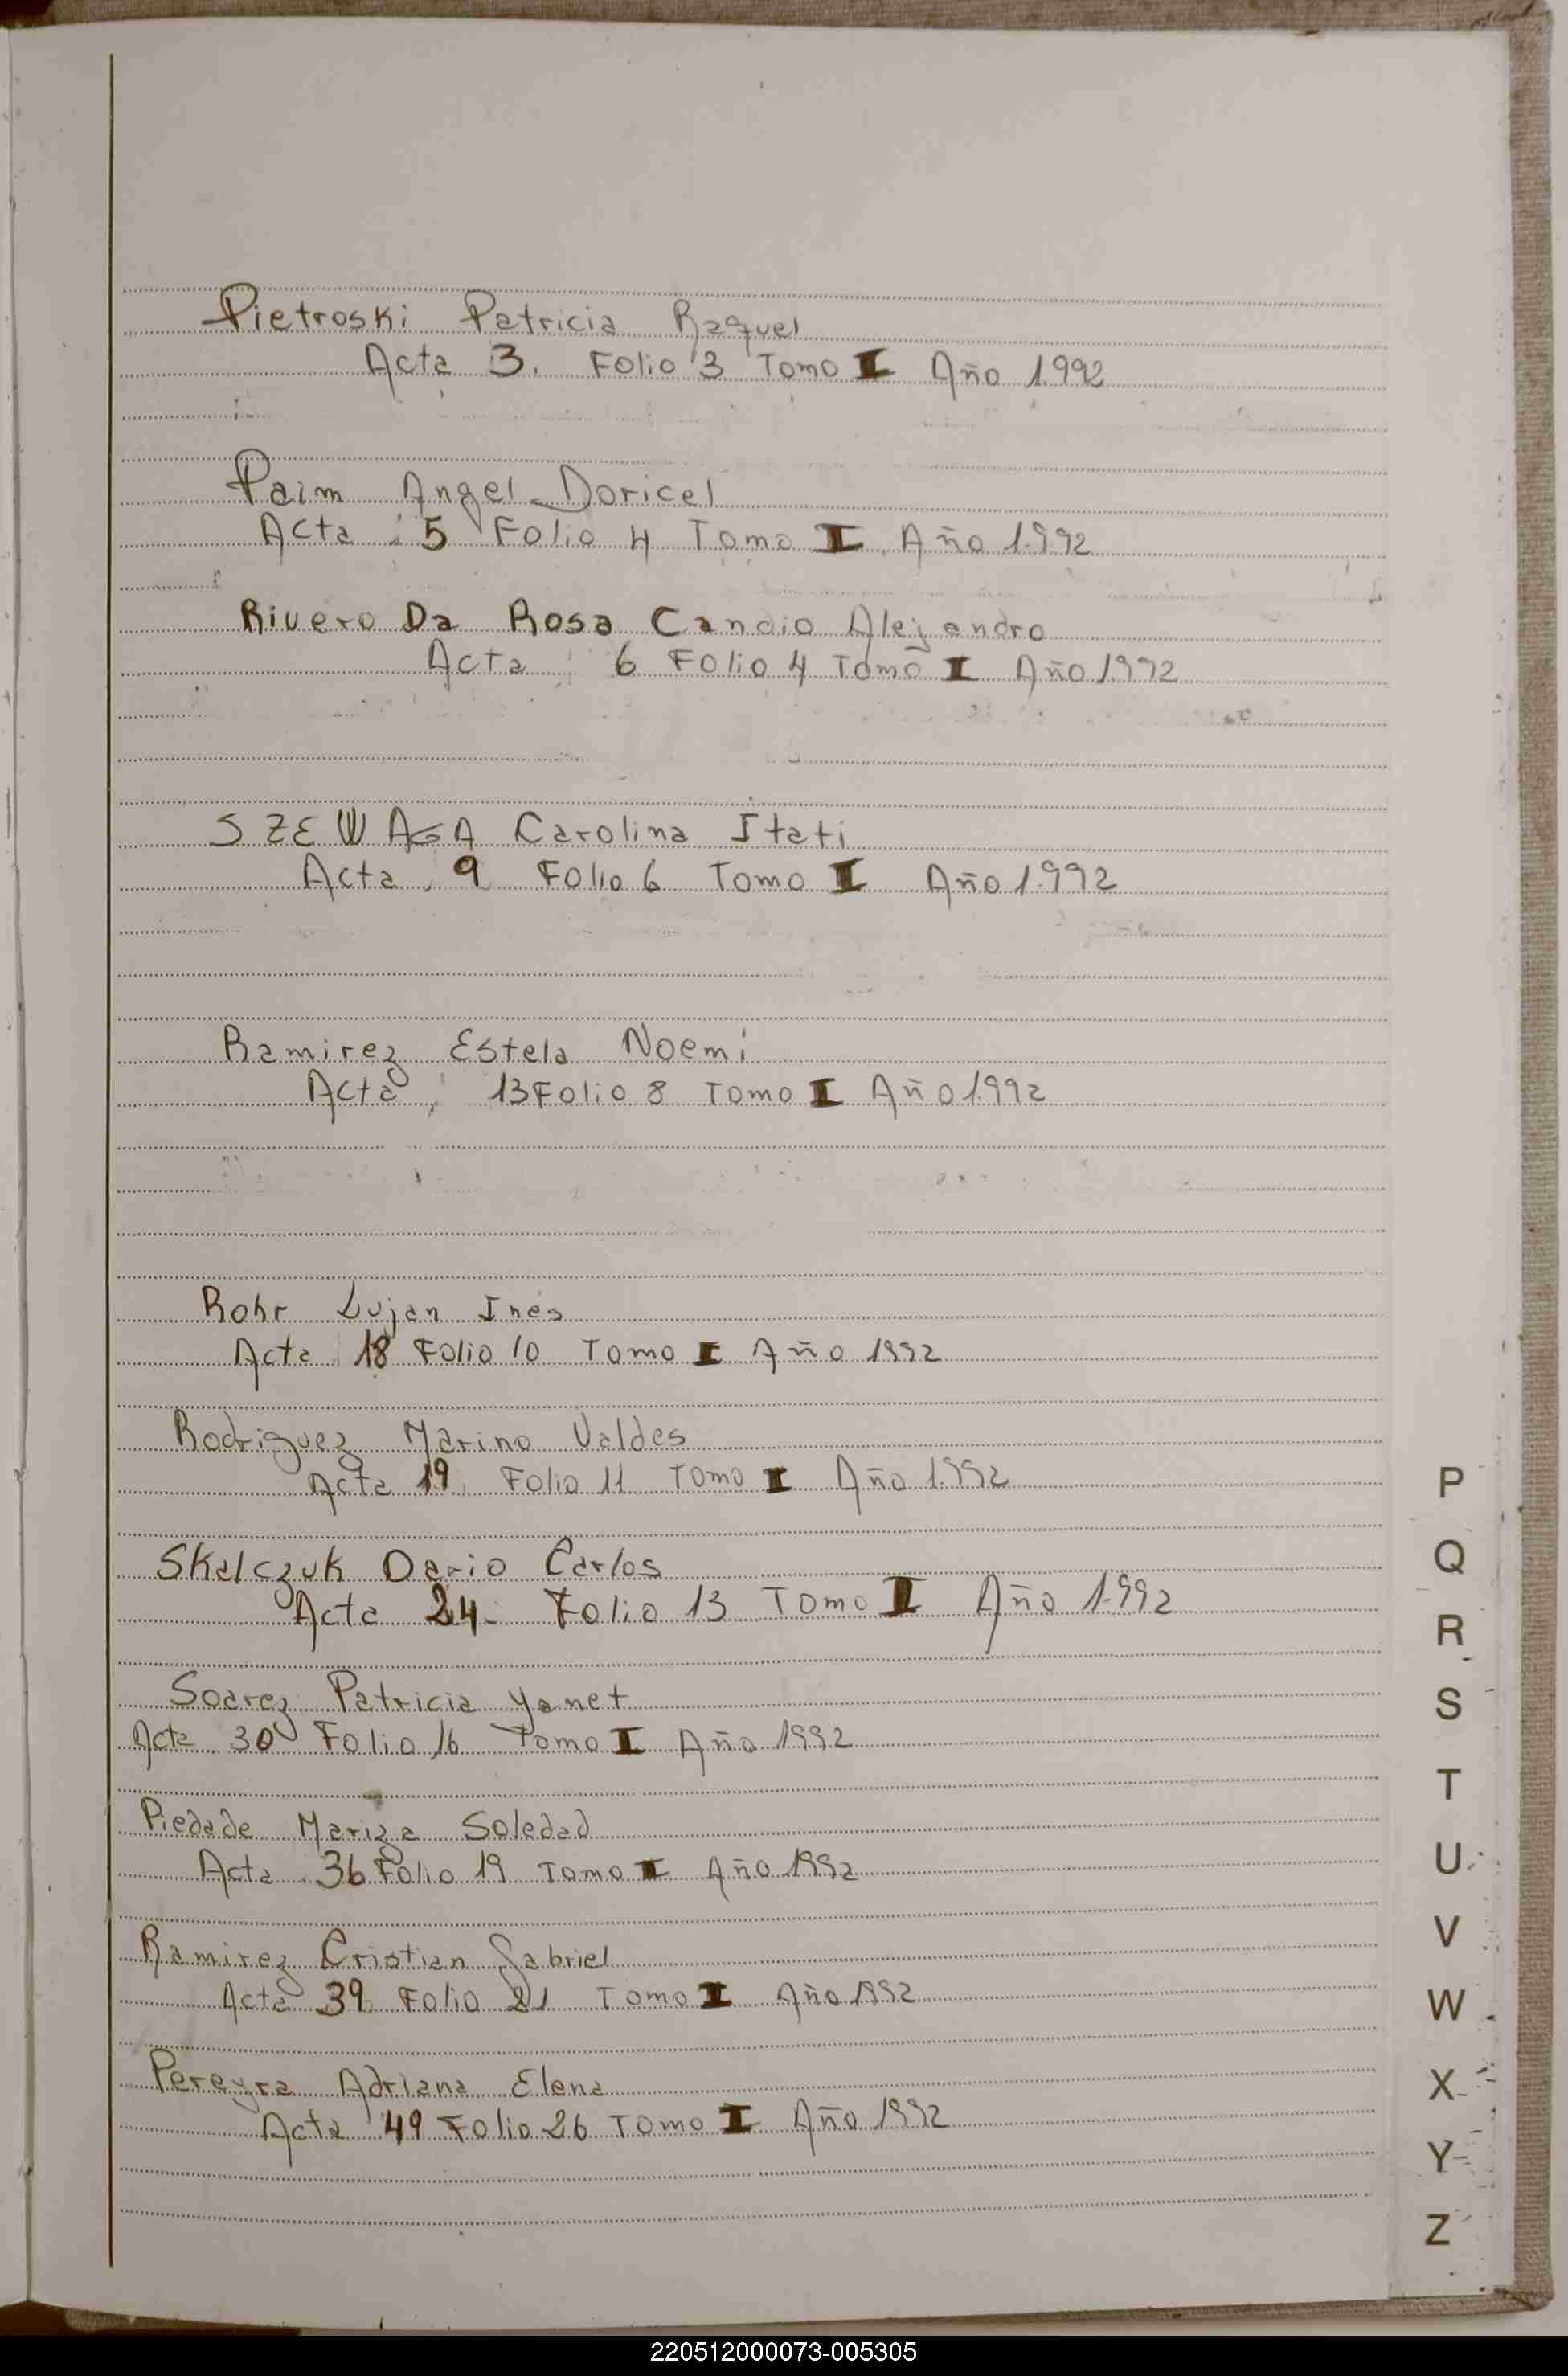 Pietroski Patricia Raquel
Acta 3. Folio 3 Tomo I Año 1.992
Paim Angel Doricel
Acta : 5 Folio 4 Tomo I Año 1.992
Rivero Da Rosa Candio Alejandro
Acta : 6 Folio 4 Tomo I Año 1.992
SZEWAGA Carolina Itati
Acta . 9 Folio 6 Tomo I Año 1.992
Ramirez Estela Noemi
Acta : 13 Folio 8 Tomo I Año 1.992
Rohr Lujan Inés
Acta 18 Folio 10 Tomo I Año 1992
Rodriguez Marino Valdes
Acta 19 Folio 11 Tomo I Año 1.992
Skalczuk Dario Carlos
Acta 24- Folio 13 Tomo I Año 1.992
Soarez Patricia Yanet
Acta 30 Folio 16 Tomo I Año 1992
Piedade Mariza Soledad
Acta 36 Folio 19 Tomo I Año 1992
Ramirez Cristian Gabriel
Acta 39 Folio 21 Tomo I Año 1992
Pereyra Adriana Elena
Acta 49 Folio 26 Tomo I Año 1992
P
Q
R
S
T
U
V
W
X
Y
Z
220512000073-005305